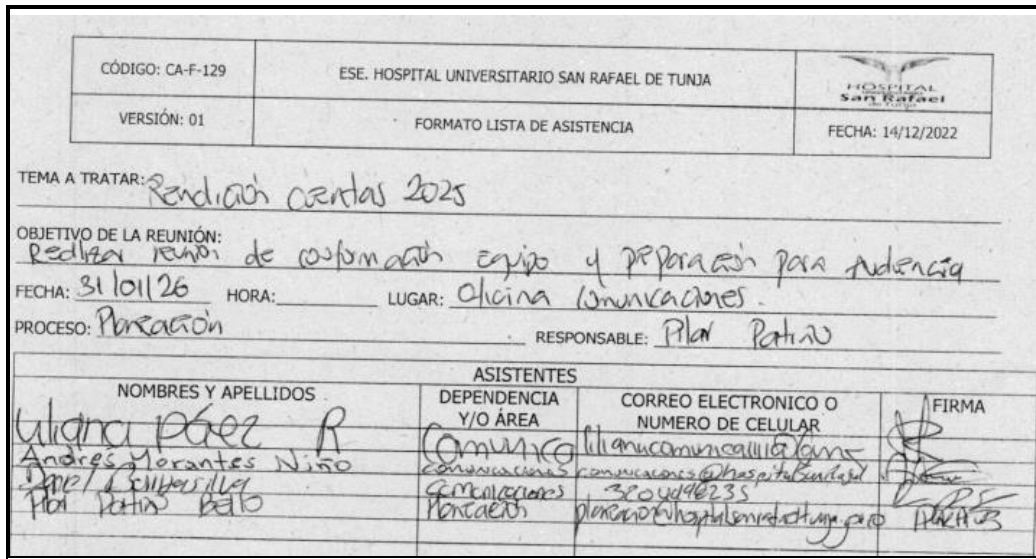 CÓDIGO: CA-F-129
ESE. HOSPITAL UNIVERSITARIO SAN RAFAEL DE TUNJA
HOSPITAL
San Rafael
de Tunja
VERSIÓN: 01
FORMATO LISTA DE ASISTENCIA
FECHA: 14/12/2022
TEMA A TRATAR: Rendición cuentas 2025
OBJETIVO DE LA REUNIÓN:
Realizar reunión de conformación Equipo y preparación para Audiencia
FECHA: 31/01/26 HORA: LUGAR: Oficina Comunicaciones.
PROCESO: Planeación RESPONSABLE: Pilar Patiño
ASISTENTES
NOMBRES Y APELLIDOS DEPENDENCIA Y/O ÁREA CORREO ELECTRONICO O NUMERO DE CELULAR FIRMA
Liliana Páez R Comunica
Andres Morantes Niño comunicaciones
Comunicaciones 3204496235
Pilar Patiño Bello Planeación